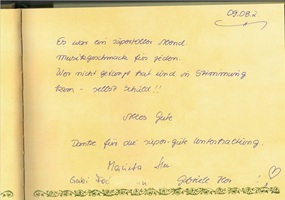 09.08.2
Es war ein supertoller Abend.
Musikgeschmack für jeden.
Wer nicht getanzt hat und in Stimmung
kam - selbst Schuld!!
Alles Gute
Danke für die super-gute Unterhaltung.
Marietta
Gabi
Gabriele